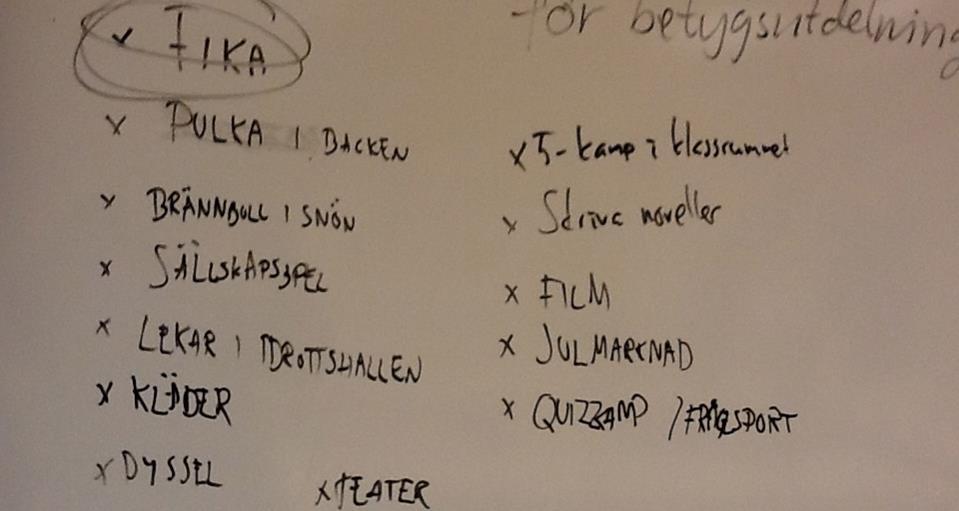 för betygsutdelning
✓ FIKA
x PULKA I BACKEN
x BRÄNNBOLL I SNÖN
x SÄLLSKAPSSPEL
x LEKAR I IDROTTSHALLEN
x KLÄDER
x DYSSEL
x TEATER
x 5-kamp i klassrummet
x Skriva noveller
x FILM
x JULMARKNAD
x QUIZKAMP / FRÅGESPORT